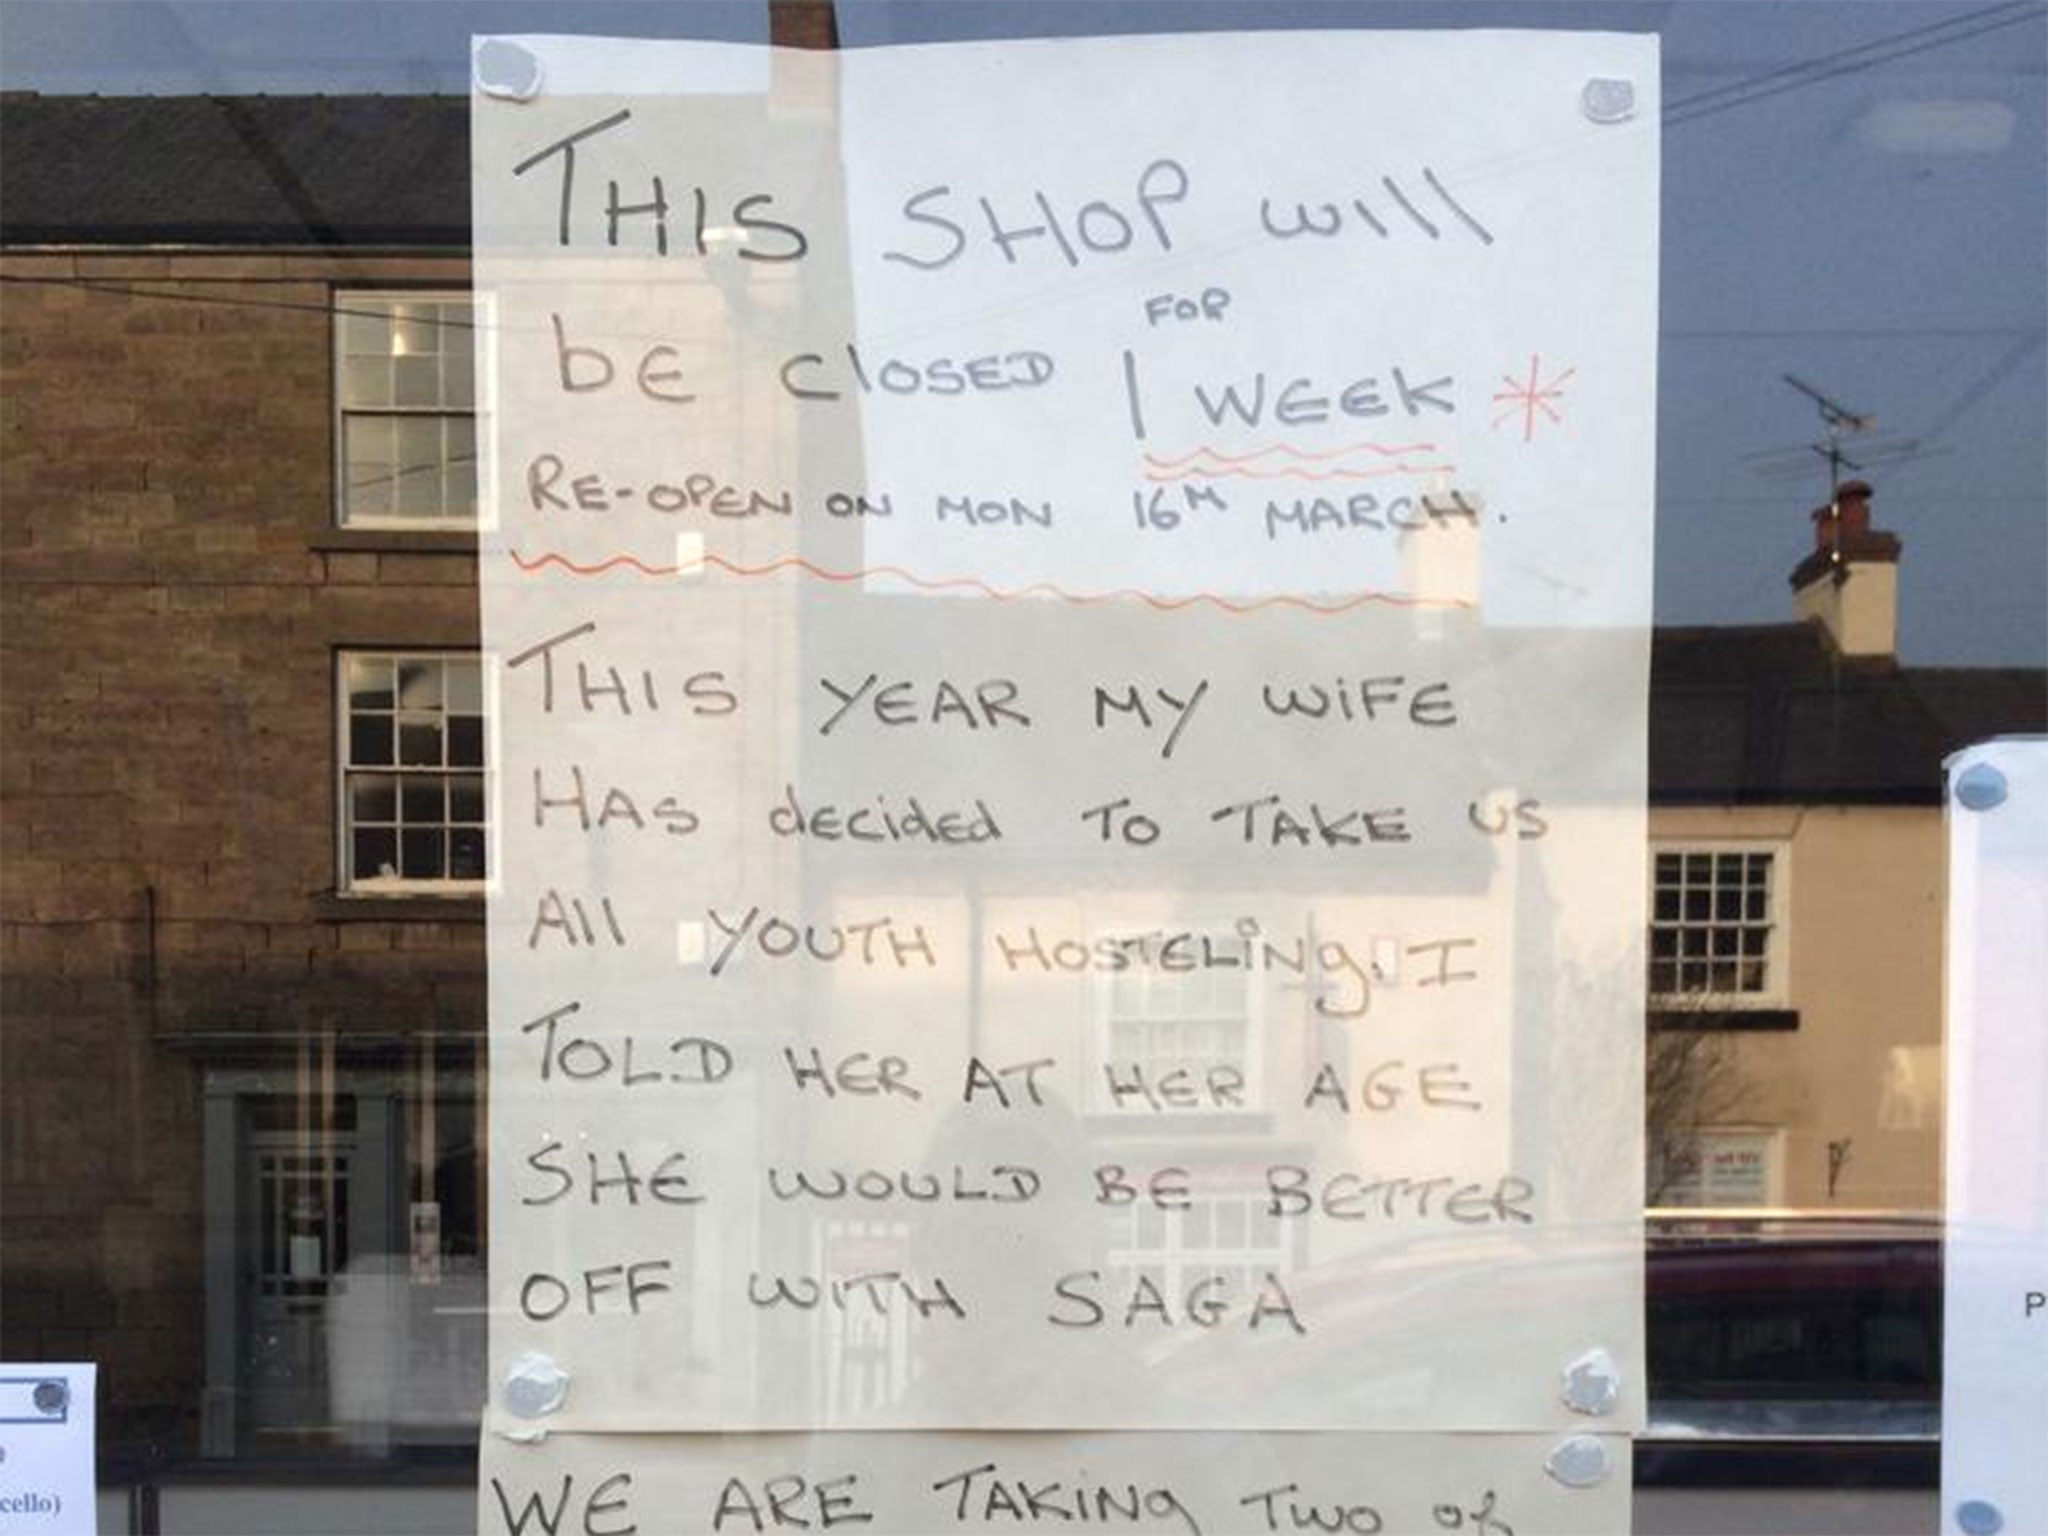 THIS SHOP will
be closed FOR 1 WEEK *
RE-OPEN ON MON 16TH MARCH.
THIS YEAR MY WIFE
HAS decided TO TAKE US
All YOUTH HOSTELING. I
TOLD HER AT HER AGE
SHE WOULD BE BETTER
OFF WITH SAGA
WE ARE TAKING TWO of
cello)
P